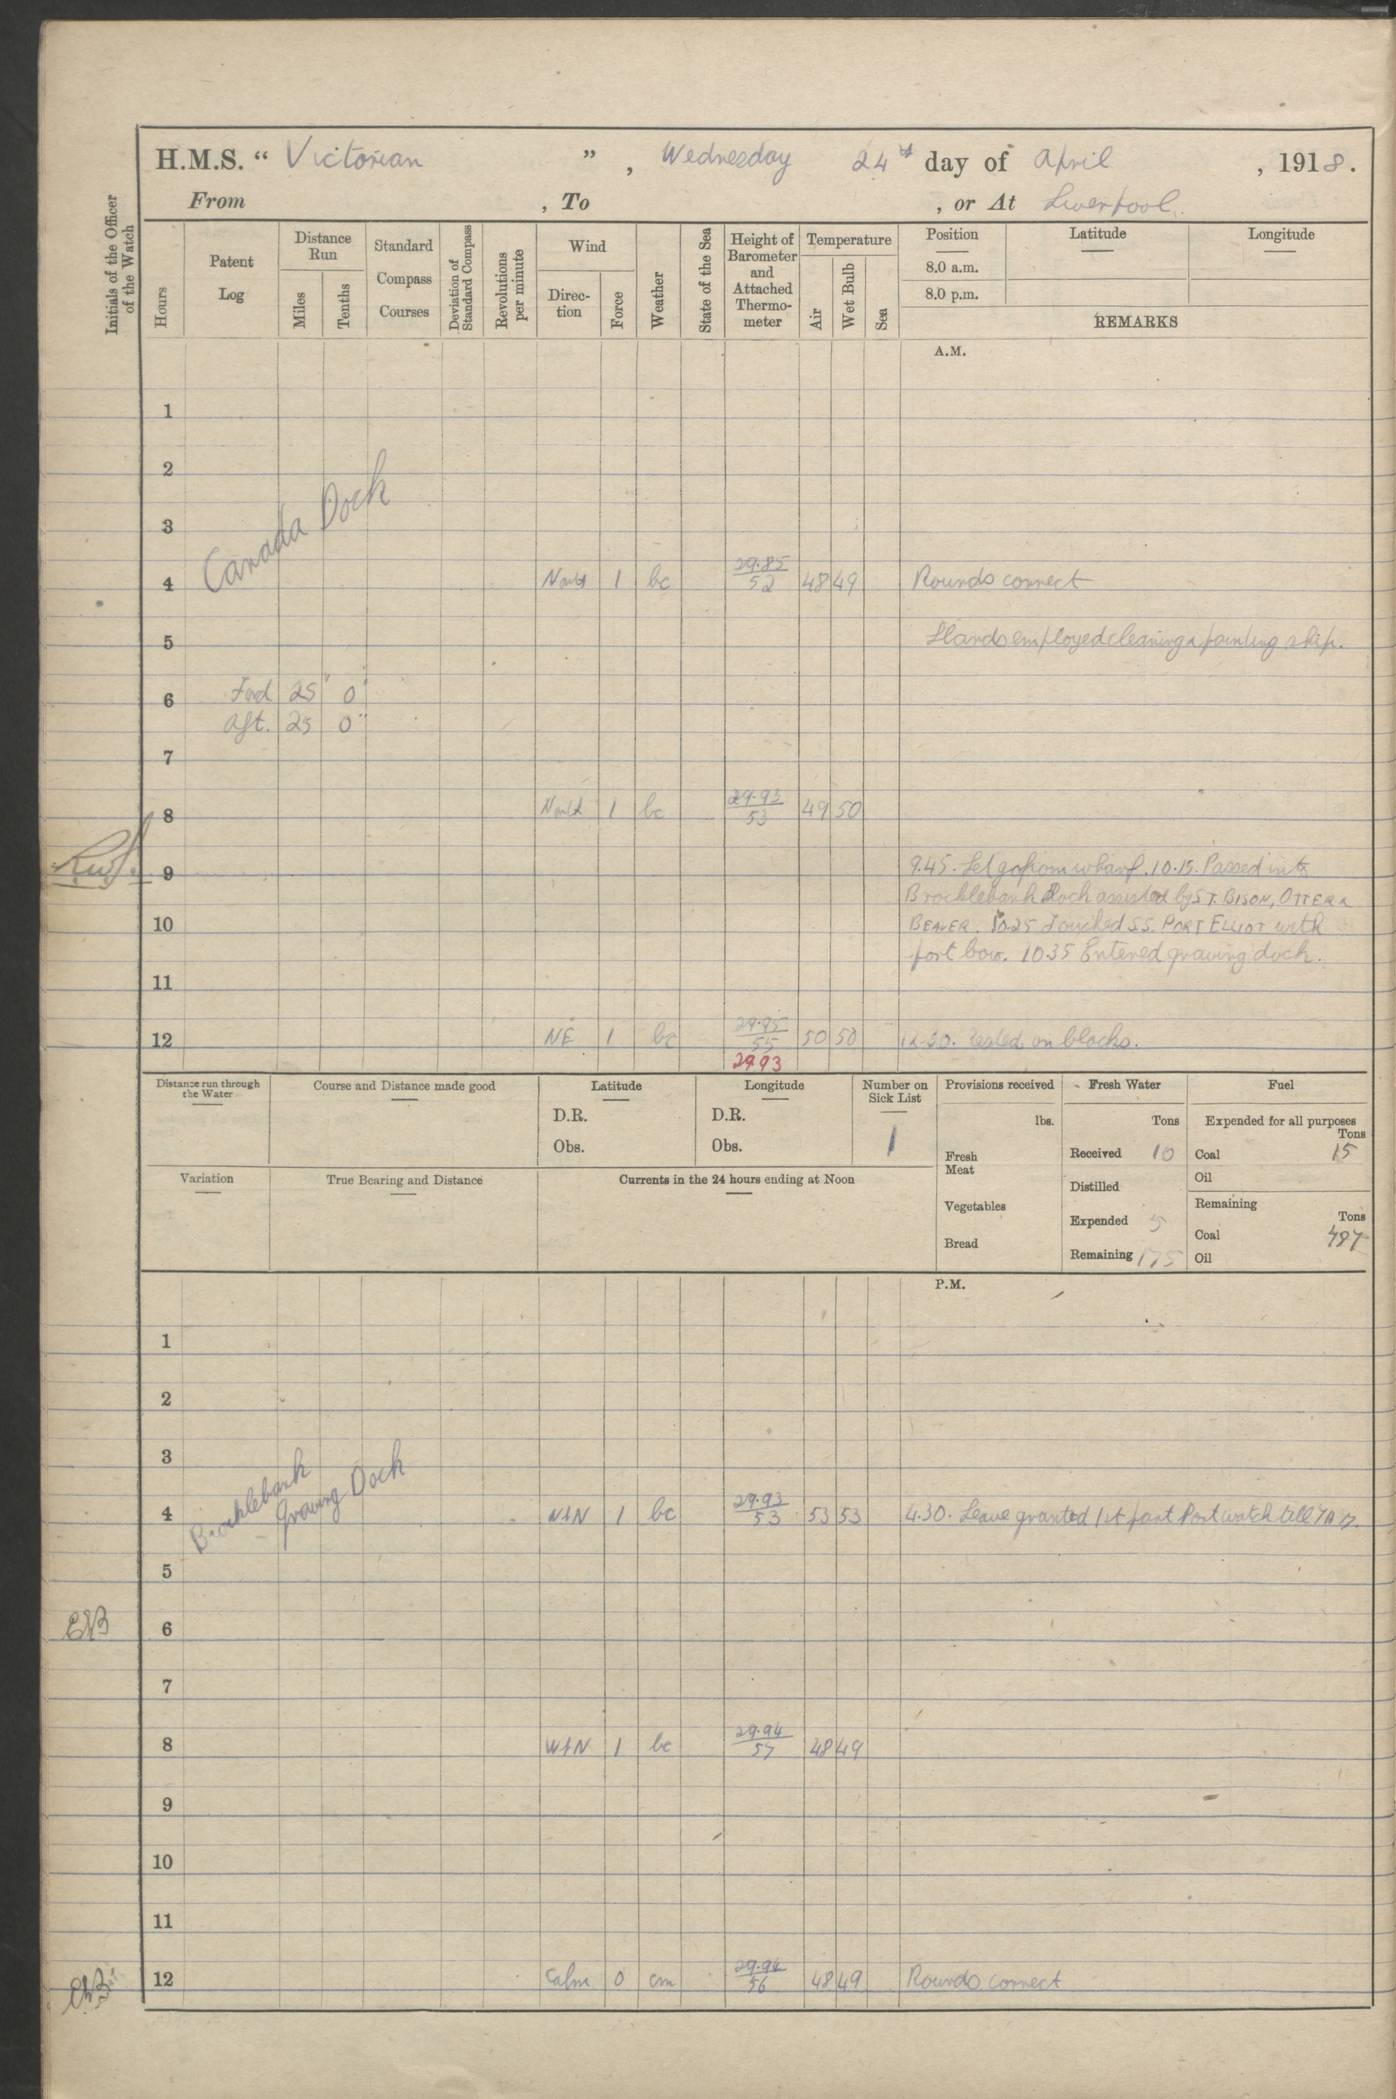 H.M.S. “ Victorian ” , Wednesday 24th day of April , 1918.
From , To , or At Liverpool.
Initials of the Officer of the Watch
Hours
Patent Log
Distance Run
Miles
Tenths
Standard Compass Courses
Deviation of Standard Compass
Revolutions per minute
Wind
Direc-tion
Force
Weather
State of the Sea
Height of Barometer and Attached Thermo-meter
Temperature
Air
Wet Bulb
Sea
Position Latitude Longitude
8.0 a.m.
8.0 p.m.
REMARKS
A.M.
1
2
3
Canada Dock
4 North 1 bc 29.85/52 48 49 Rounds correct
5 Hands employed cleaning & painting ship.
6 Ford 25' 0"
Aft. 25 0"
7
8 North 1 bc 29.93/53 49 50
9 9.45. Let go from wharf. 10.15. Passed into
Brocklebank Dock assisted by S.T. BISON, OTTER &
10 BEAVER. 10.25 Touched S.S. PORT ELLIOT with
port bow. 10.35 Entered graving dock.
11
12 NE 1 bc 29.95/55 50 50 12.30. rested on blocks.
29.93
Distance run through the Water
Course and Distance made good
Latitude
D.R.
Obs.
Longitude
D.R.
Obs.
Number on Sick List
1
Provisions received
lbs.
Fresh Meat
Vegetables
Bread
Fresh Water
Tons
Received 10
Distilled
Expended 5
Remaining 175
Fuel
Expended for all purposes
Tons
Coal 15
Oil
Remaining
Tons
Coal
Oil
Variation
True Bearing and Distance
Currents in the 24 hours ending at Noon
P.M.
1
2
3
Brocklebank
Graving Dock
4 N&N 1 bc 29.93/53 53 53 4.30. Leave granted 1st part Port watch till 7 AM.
5
EB
6
7
8 W&N 1 bc 29.94/57 48 49
9
10
11
12 Calm 0 cm 29.94/56 48 49 Rounds correct